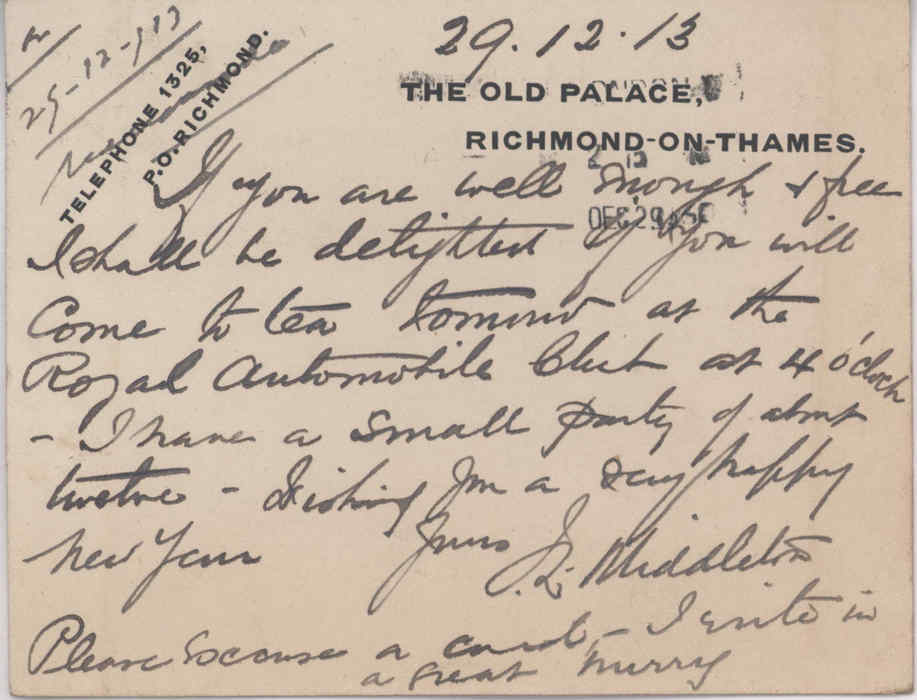 29.12.13
29-12-913
TELEPHONE 1325,
P.O. RICHMOND.
THE OLD PALACE,
RICHMOND-ON-THAMES.
DEC 29
If you are well enough & free
I shall be delighted if you will
Come to tea tomorrow at the
Royal Automobile Club at 4 o'clock
- I have a small party of about
twelve - Wishing you a very happy
New Year Yours J. L. Middleton
Please excuse a card, - I write in
a great hurry